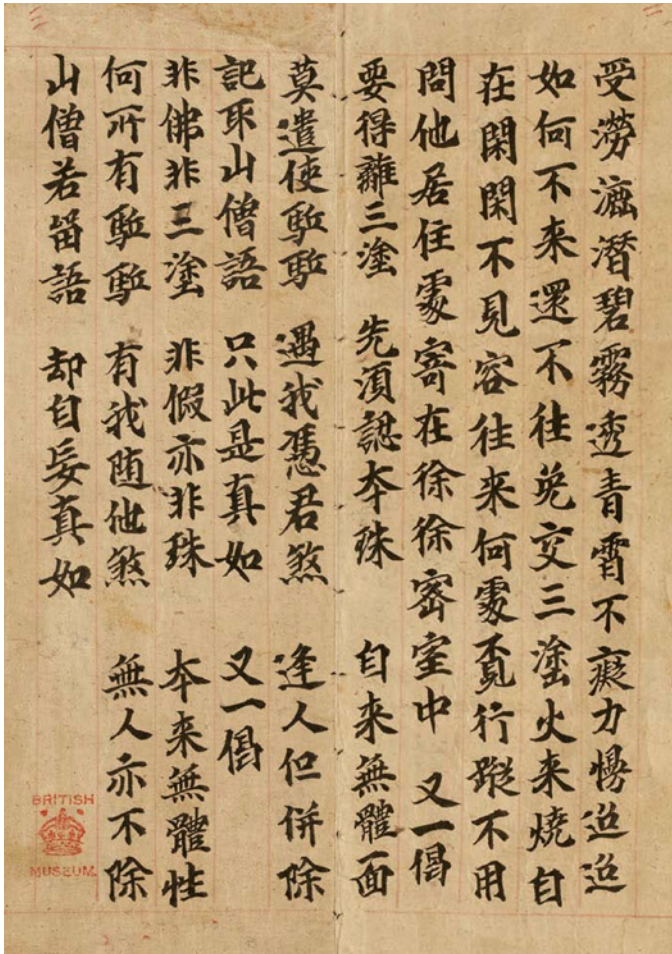 受澇漉潛碧霧透青霄不癡力慢迢迢
如何不来還不往免交三塗火来燒自
在閑閑不見容往来何處覓行蹤不用
問他居住處寄在徐徐密室中 又一偈
要得離三塗 先須認本珠 自来無體面
莫遣使駈駈 遇我憑君煞 逢人但併除
記取山僧語 只此是真如 又一偈
非佛非三塗 非假亦非珠 本来無體性
何所有駈駈 有我随他煞 無人亦不除
山僧若留語 却自妄真如
BRITISH
MUSEUM